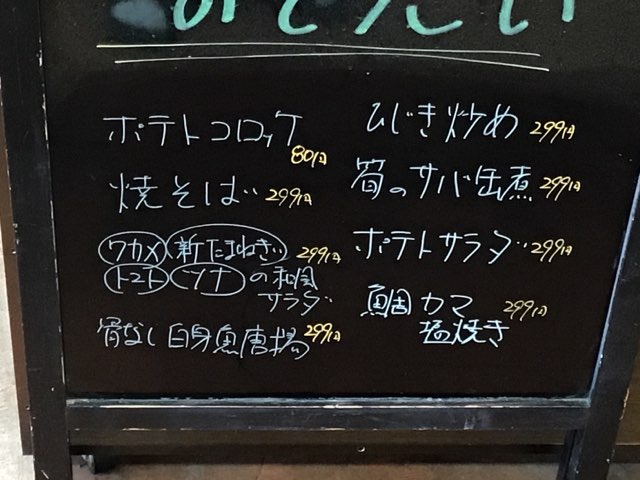 ポテトコロッケ 80円
焼そば 299円
ワカメ 新たまねぎ 299円
トマト ツナ の和風
サラダ
骨なし白身魚唐揚 299円
ひじき炒め 299円
筍のサバ缶煮 299円
ポテトサラダ 299円
鯛カマ 299円
塩焼き